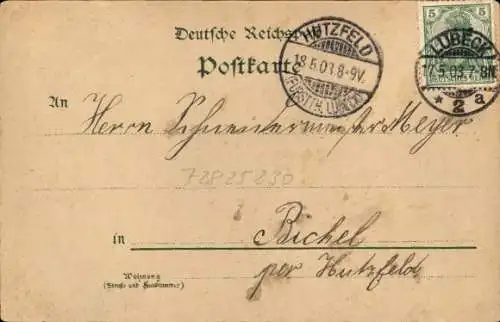 Deutsche Reichspost
Postkarte
HUTZFELD
18.5.03.8-9V.
(FÜRSTTH. LÜBECK)
5
LÜBECK
17.5.03.7-8N.
* 2 a
An Herrn Schneidermeister Meyer
72825230
in Bichel
per Hutzfeld
Wohnung
(Straße und Hausnummer)